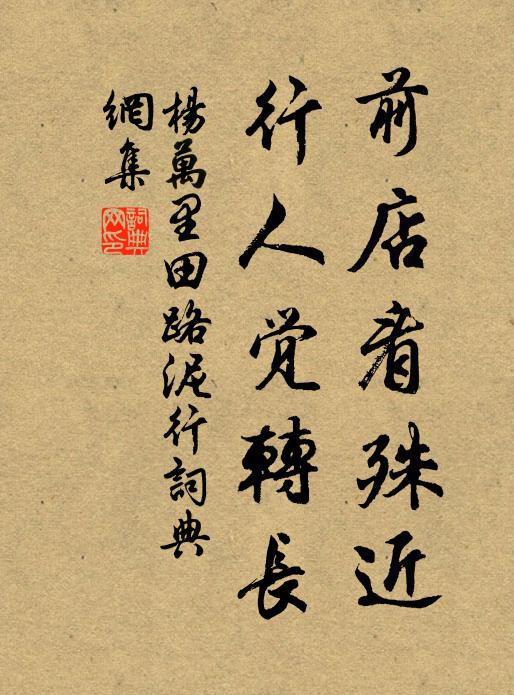 前店看殊近
行人覚轉長
楊萬里田路泥行詞典
網集
詞典
网印